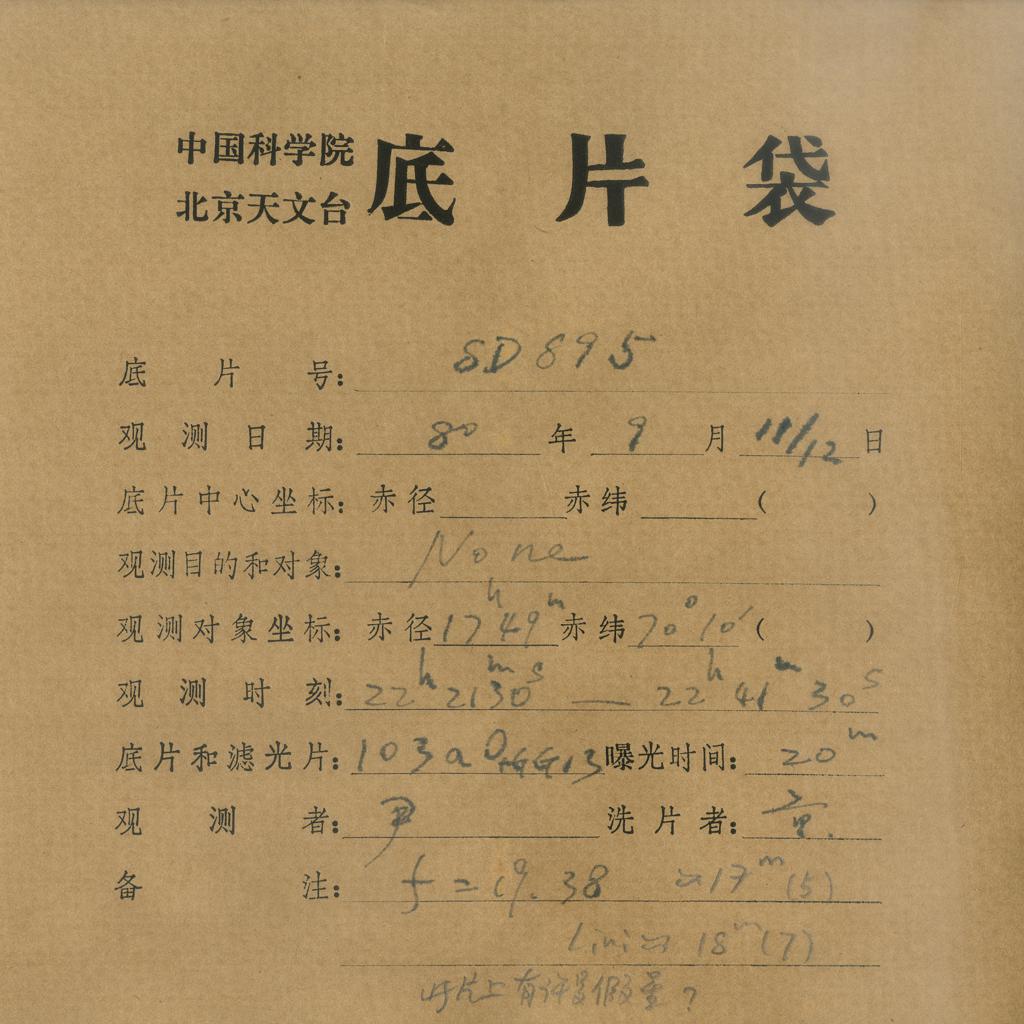 中国科学院
北京天文台
底片袋
底片号: SD895
观测日期: 80年9月11/12日
底片中心坐标: 赤径 赤纬 ( )
观测目的和对象: None
观测对象坐标: 赤径17h49m赤纬70°10′( )
观测时刻: 22h21m30s — 22h41m30s
底片和滤光片: 103aD+GG13 曝光时间: 20m
观测者: 尹 洗片者: 童.
备注: f=19.38 ≈17m(5)
limi≈18m(7)
此片上有许多假星?